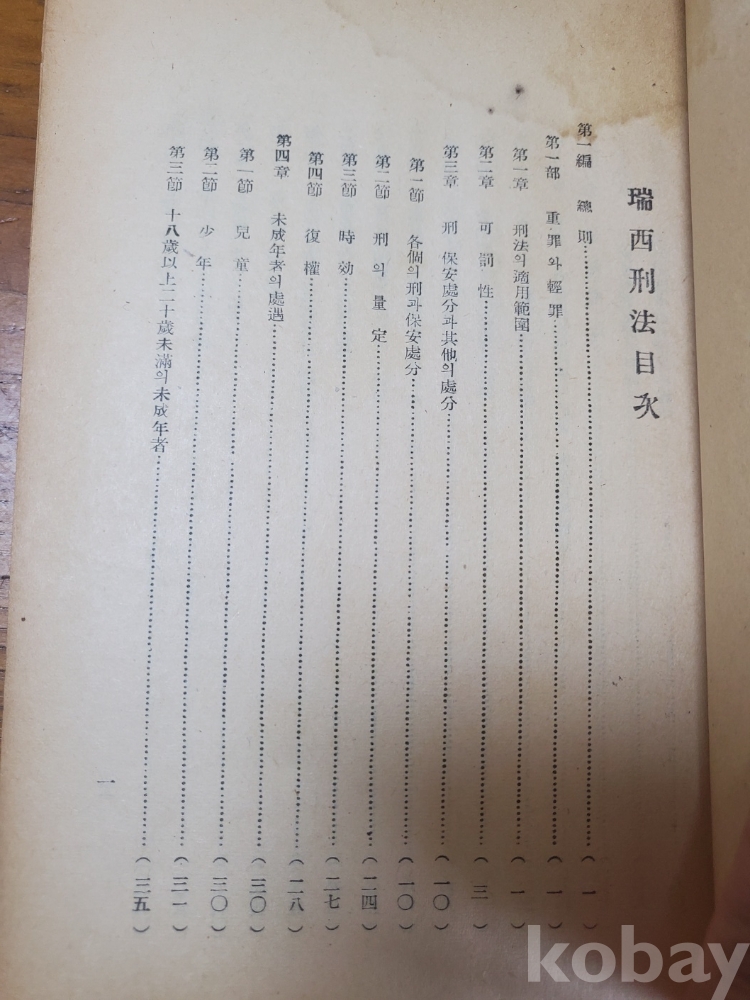 瑞西刑法目次
第一編 總則……(一)
第一部 重罪와輕罪……(一)
第一章 刑法의適用範圍……(一)
第二章 可罰性……(三)
第三章 刑 保安處分과其他의處分……(一〇)
第一節 各個의刑과保安處分……(一〇)
第二節 刑의量定……(二四)
第三節 時効……(二七)
第四節 復權……(二八)
第四章 未成年者의處遇……(三〇)
第一節 兒童……(三〇)
第二節 少年……(三一)
第三節 十八歲以上二十歲未滿의未成年者……(三五)
一
kobay